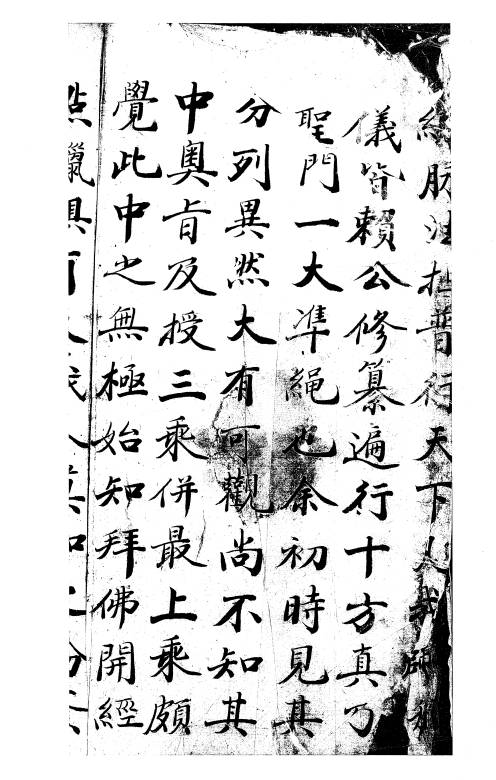 普行天下
儀皆賴公修纂遍行十方真乃
聖門一大凖繩也余初時見其
分列異然大有可觀尚不知其
中奧旨及授三乘併最上乘頗
覺此中之無極始知拜佛開經